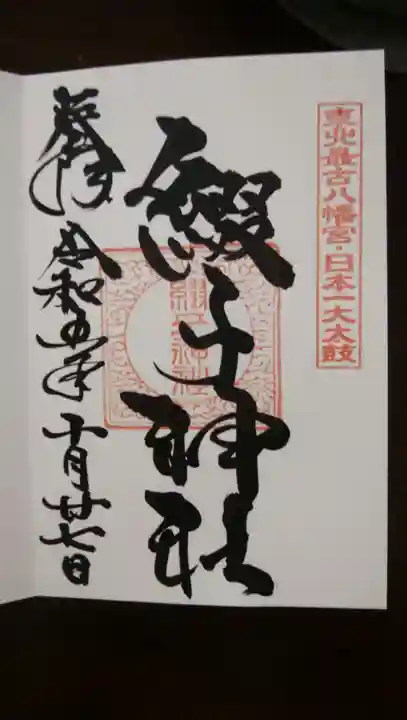 東北最古八幡宮・日本一大太鼓
綴子神社
綴子神社
奉拝 令和五年十月廿七日